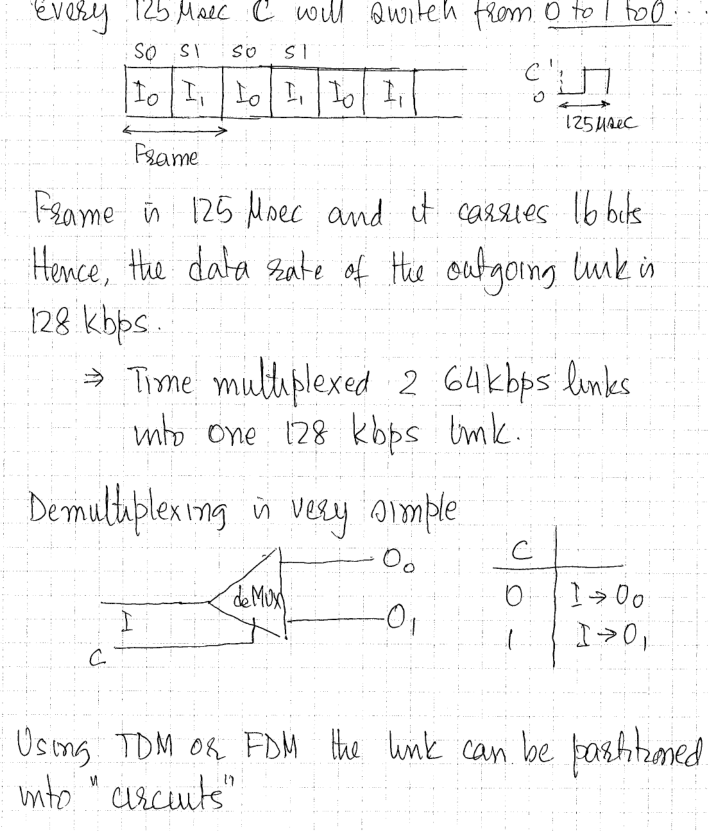 Every 125 μsec C will switch from 0 to 1 to 0...
S0 S1 S0 S1
I0 I1 I0 I1 I0 I1
C 1
0
125 μsec
Frame
Frame is 125 μsec and it carries 16 bits
Hence, the data rate of the outgoing link is
128 kbps.
⇒ Time multiplexed 2 64kbps links
into one 128 kbps link.
Demultiplexing is very simple
I
C
deMUX
O0
O1
C
0 I → O0
1 I → O1
Using TDM or FDM the link can be partitioned
into "circuits"